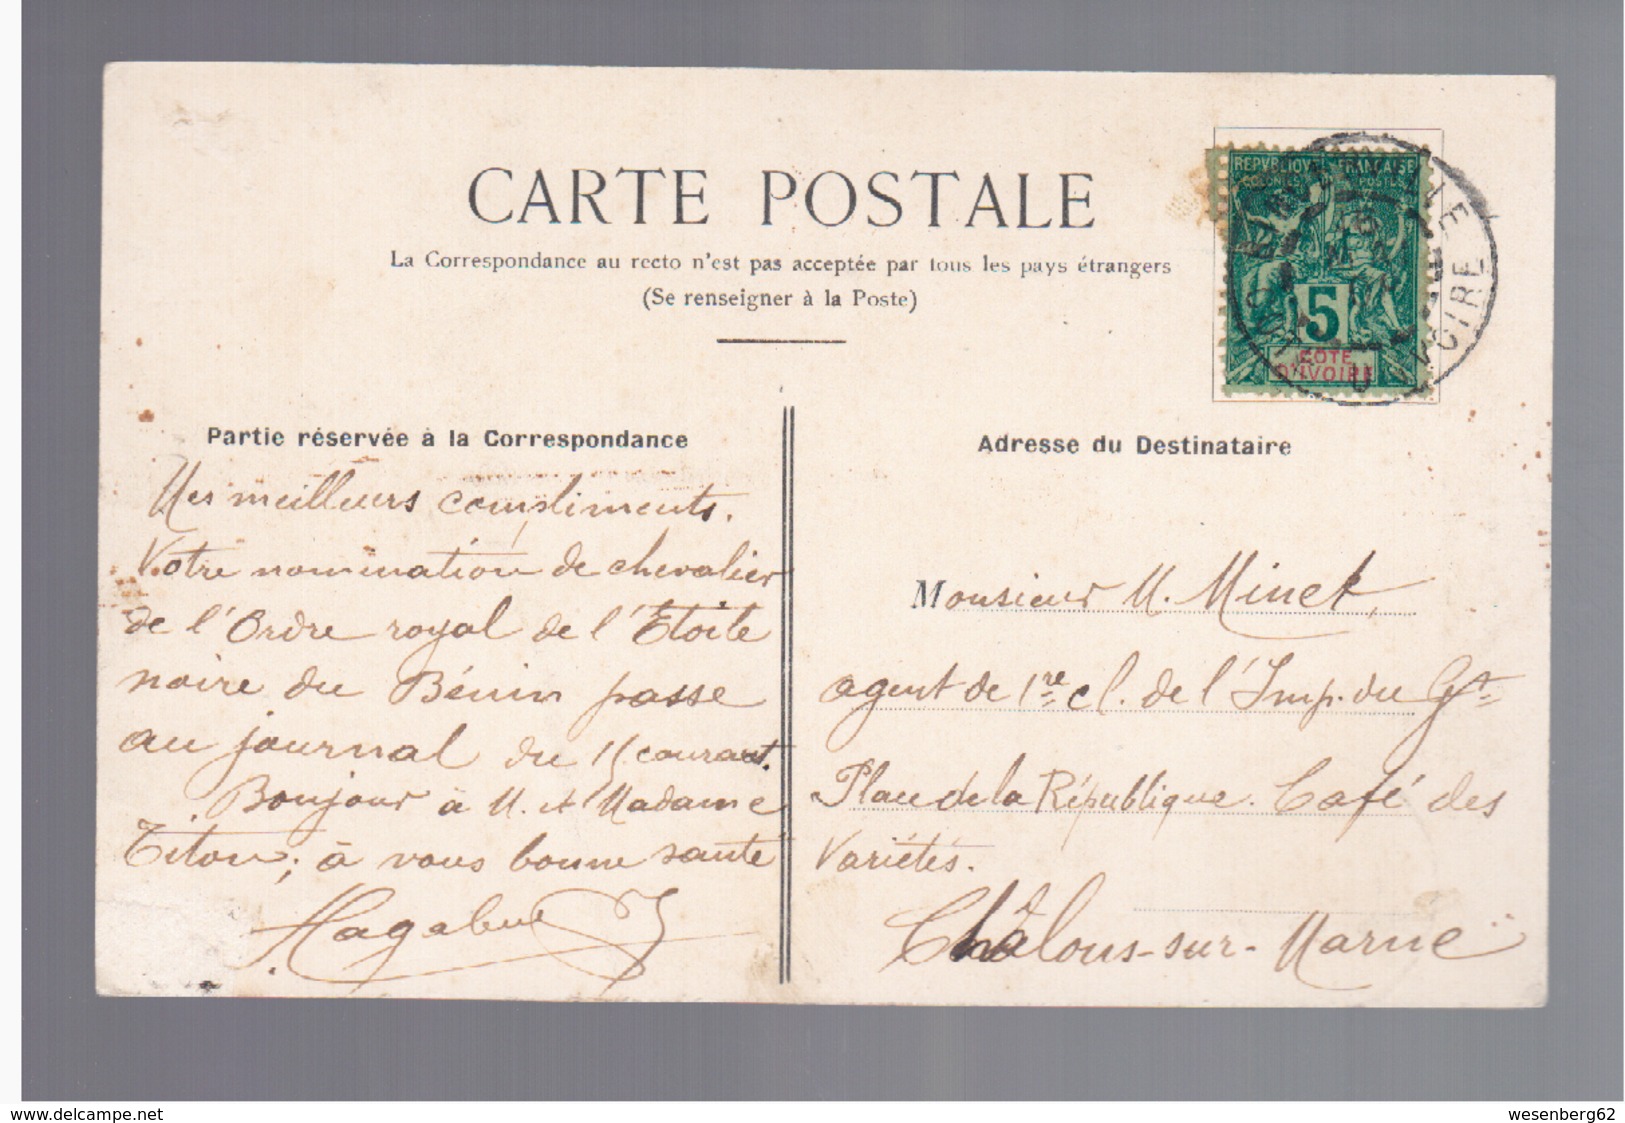 CARTE POSTALE
La Correspondance au recto n'est pas acceptée par tous les pays étrangers
(Se renseigner à la Poste)
REPVBLIQVE FRANÇAISE
COLONIES POSTES
5
CÔTE
D'IVOIRE
Partie réservée à la Correspondance
Mes meilleurs compliments.
Votre nomination de chevalier
de l'Ordre royal de l'Etoile
noire du Bénin passe
au journal du 15 courant.
Bonjour à M. et Madame
Titon; à vous bonne santé
Adresse du Destinataire
Monsieur M. Minet,
agent de 1re cl. de l'Imp. du Gt
Place de la République. Café des
Variétés.
Châlons-sur-Marne
www.delcampe.net
wesenberg62